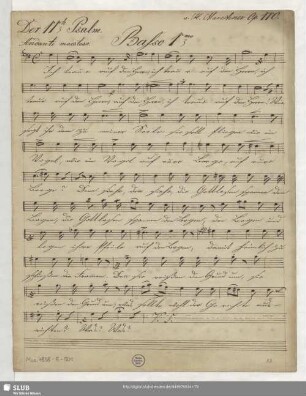 v. H. Marschner Op. 110
Der 11te Psalm.
Andante maestoso
Basso 1mo
Ich traue auf den Herrn, ich traue auf den Herrn, ich
traue auf den Herrn, auf den Herrn, ich traue auf den Herrn. Wie
sagt ihr denn zu meiner Seele: sie soll fliegen wie ein
Vogel, wie ein Vogel auf eure Berge, auf eure
Berge? Denn siehe, siehe die Gottlosen spannen den
Bogen, die Gottlosen spannen den Bogen, den Bogen und
legen ihre Pfeile auf die Sehnen, damit heimlich zu
schießen die Frommen. Denn sie reißen den Grund um, sie
reißen den Grund um; was sollte der Gerechte aus-
richten? Was? Was?
Mus. 4838-E-501
SLUB